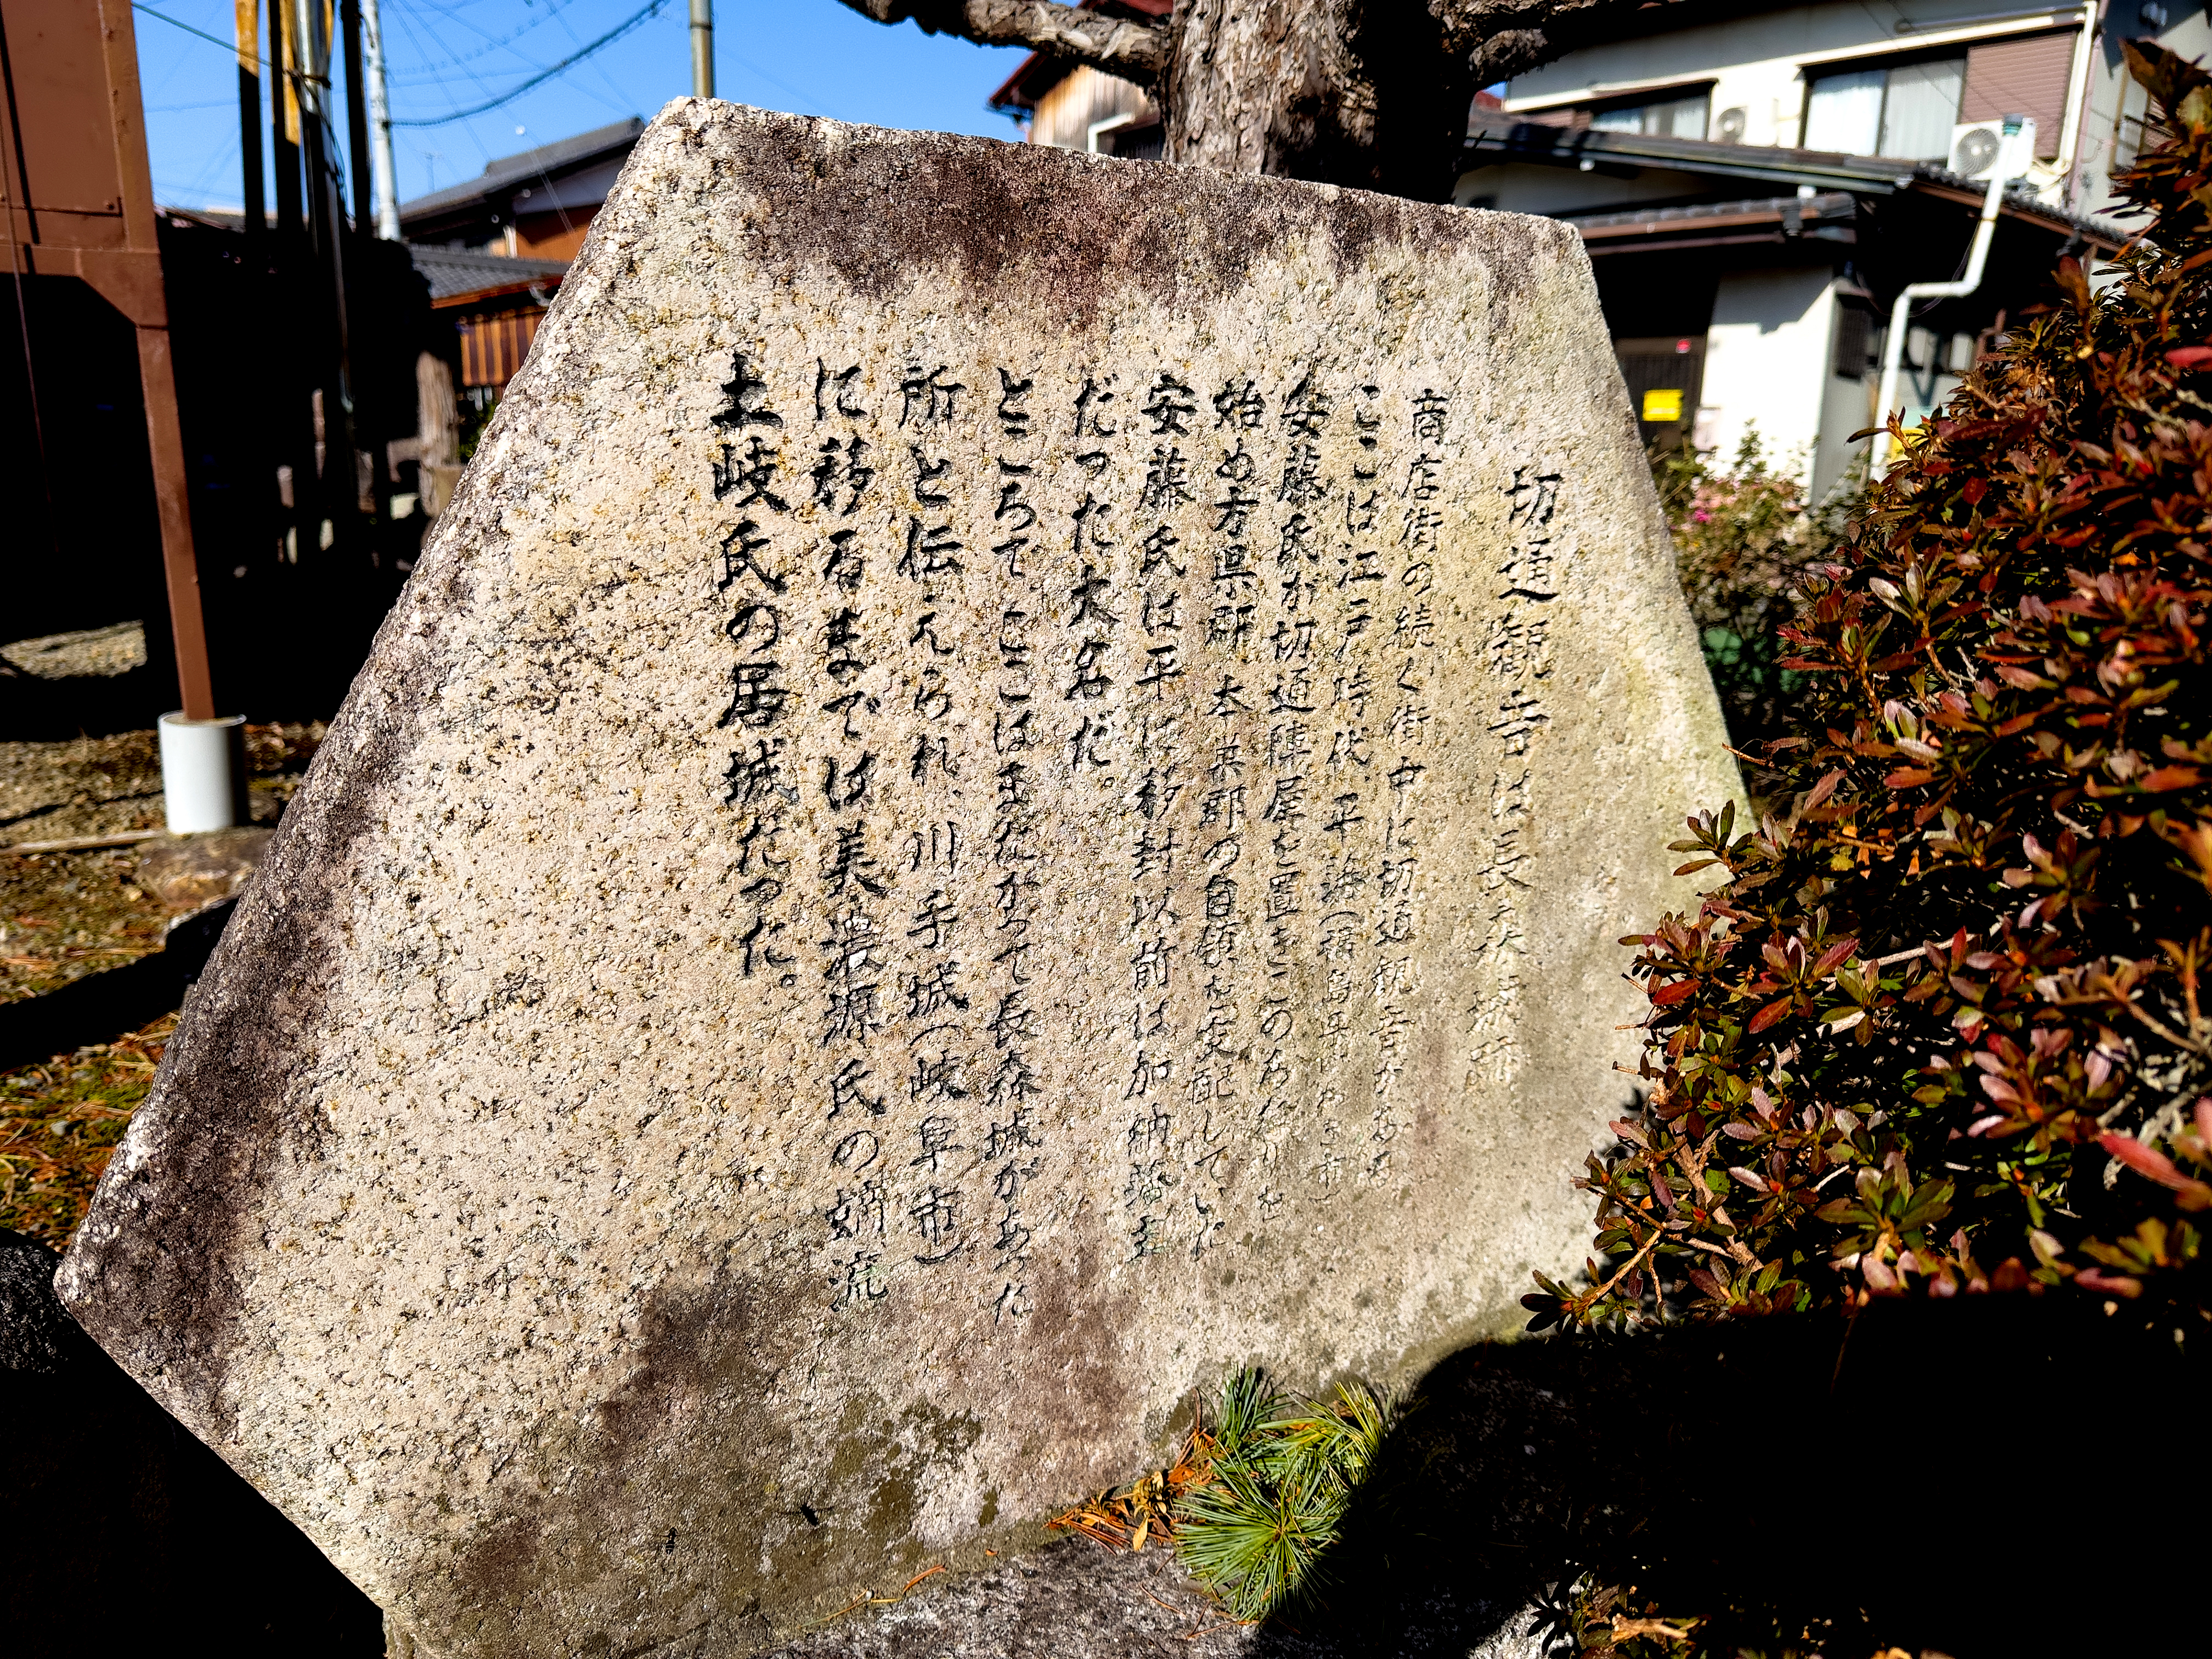 切通観音は長森城跡
商店街の続く街中に切通観音がある
ここは江戸時代、平藩(福島県いわき市)
安藤氏が切通陣屋を置きこのあたりを
始め方県郡 本巣郡の自領を支配していた
安藤氏は平に移封以前は加納藩主
だった大名だ。
ところで ここはまたかつて長森城があった
所と伝えられ、川手城(岐阜市)
に移るまでは美濃源氏の嫡流
土岐氏の居城だった。